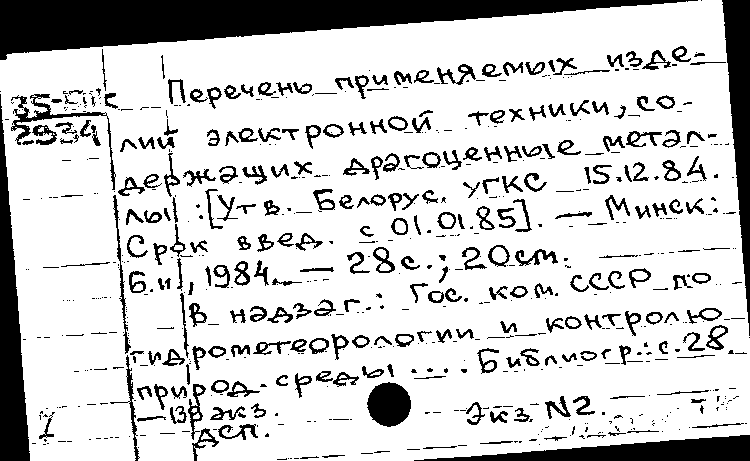 Перечень применяемых изде-
35-
2934
лий электронной техники, со-
держащих драгоценные метал-
лы : [Утв. Белорус. УГКС 15.12.84.
Срок введ. с 01.01.85]. — Минск:
Б.и., 1984. — 28 с.; 20 см.
В надзаг.: Гос. ком. СССР по
гидрометеорологии и контролю
природ. среды .... Библиогр.: с. 28.
— 139 экз.
Экз N2.
ДСП.
1